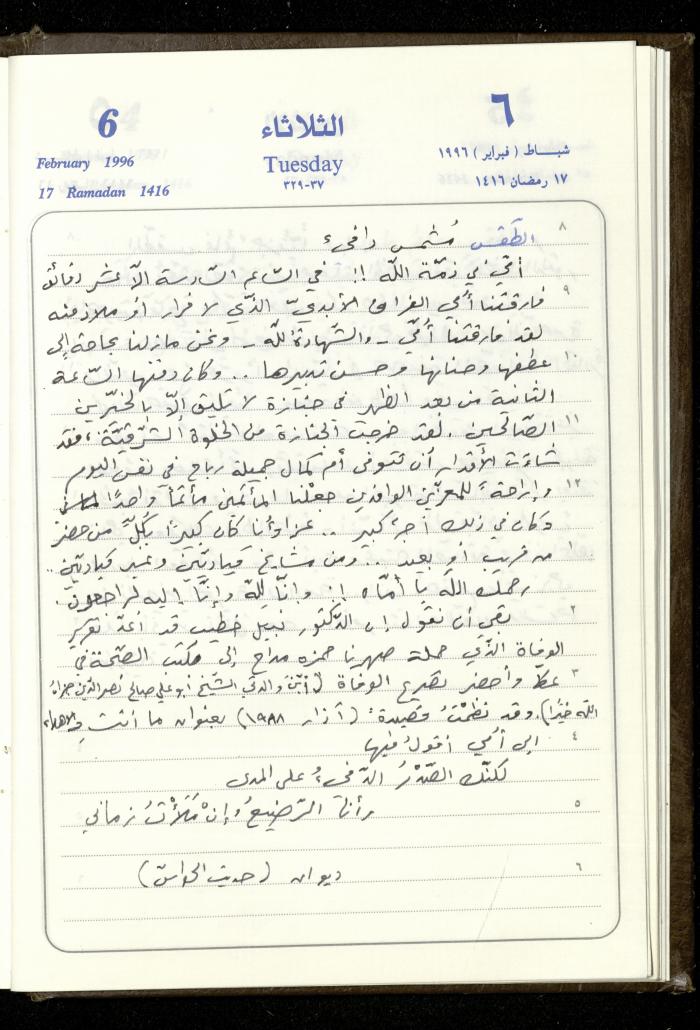 6
الثلاثاء
٦
February 1996
Tuesday
شباط ( فبراير ) ١٩٩٦
17 Ramadan 1416
٣٧-٣٢٩
١٧ رمضان ١٤١٦
٨
الطّقس مُشمس دافىء
أمّي في ذمّة اللّه !! في السّاعة السّادسة إلاّ عشر دقائق
٩
فارقتنا أمّي الفراق الأبديّ الّذي لا فرار أو ملاذ منه
لقد فارقتنا أمّي - والشّهادةُ للّه - ونحن مازلنا بحاجة إلى
١٠
عطفها وحنانها وحسن تدبيرها .. وكان دفنها السّاعة
الثانية من بعد الظهر في جنازة لا تليق إلّا بالخيّرين
١١
الصّالحين . لقد خرجت الجنازة من الخلوة الشّرقيّة، فقد
شاءَت الأقدار أن تتوفى أم كمال جميلة رباح في نفس اليوم
١٢
وإراحةً للمعزّين الوافدين جعلنا المأتمين مأتماً واحدًا
وكان في ذلك أجرٌ كبير .. عزاؤنا كان كبيرًا بكلّ من حضر
١
من قريب أو بعيد .. ومن مشايخ قياديّين وغير قياديّين ..
رحمك اللّه يا أمّاه إن وإنّا للّه وإنّا إليه لراجعون.
٢
بقي أن نقول إن الدّكتور نبيل خطيب قد أعدّ تقرير
الوفاة الّذي حمله صهرنا حمزه مداح إلى مكتب الصّحة في
٣
عكّا وأحضر تصريح الوفاة ( والدي الشّيخ أبو علي صالح نصرالدّين جزاهُ
اللّه خيرًا) وقد نظمْتُ قصيدةً (آذار ١٩٨٨) بعنوان ما أنت والاهداء
٤
إلى أمّي أقولُ فيها
لكنّك الصّدْرُ الدّفىءُ على المدى
٥
وأنا الرّضيعُ وإنْ مَلَأْتُ زماني
٦
ديوان (حديث الحواسّ)